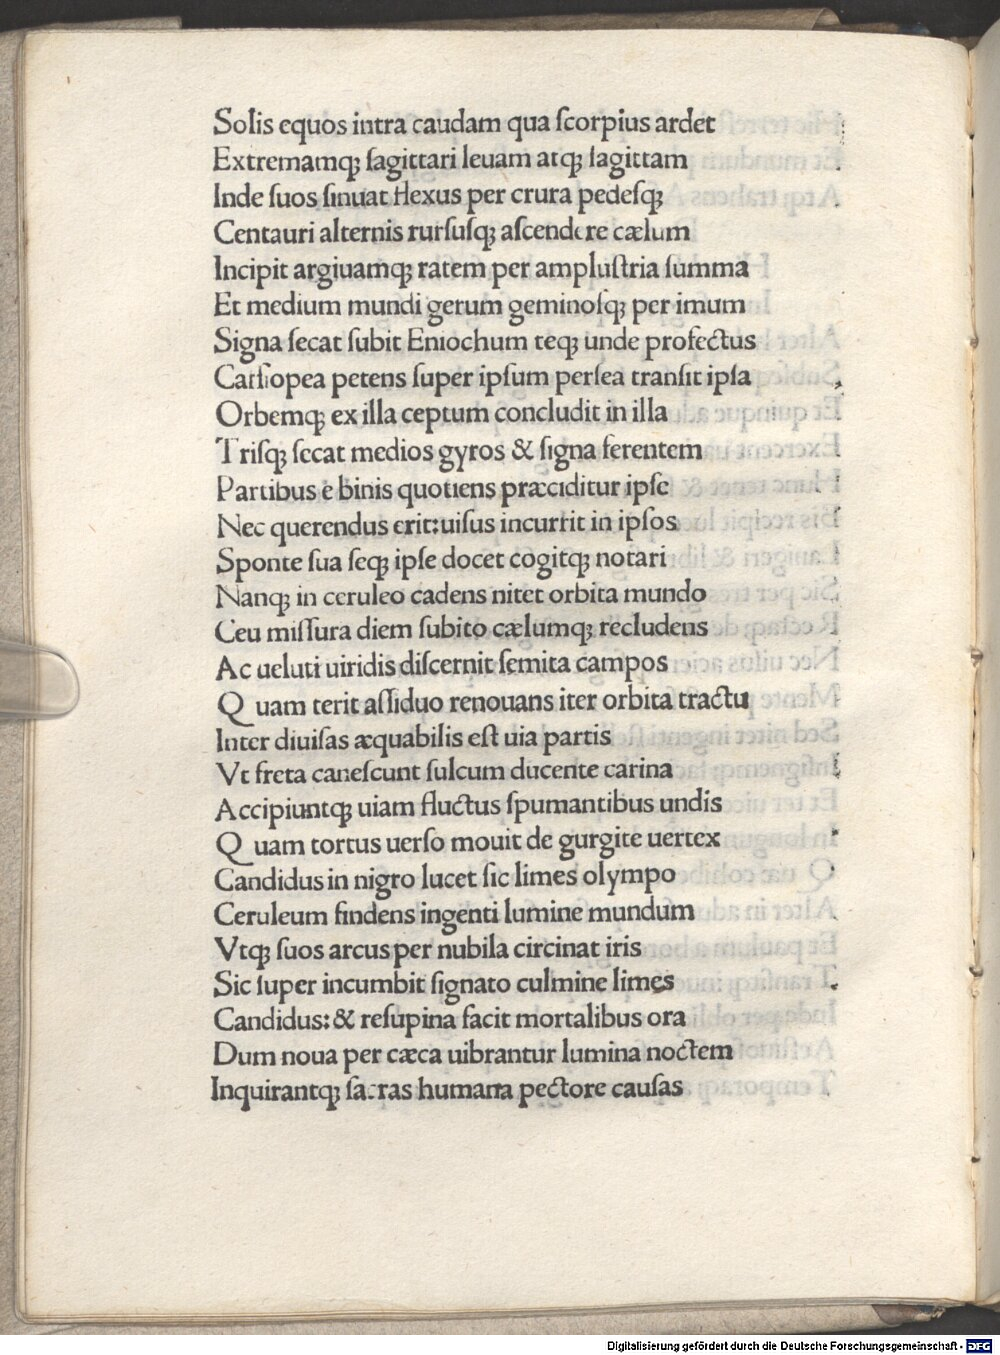 Solis equos intra caudam qua ſcorpius ardet
Extremamqꝫ ſagittari leuam atqꝫ ſagittam
Inde ſuos ſinuat flexus per crura pedeſqꝫ
Centauri alternis rurſuſqꝫ aſcendere cælum
Incipit argiuamqꝫ ratem per ampluſtria ſumma
Et medium mundi gerum geminoſqꝫ per imum
Signa ſecat ſubit Eniochum teqꝫ unde profectus
Caſſiopea petens ſuper ipſum perſea tranſit ipſa
Orbemqꝫ ex illa ceptum concludit in illa
Triſqꝫ ſecat medios gyros & ſigna ferentem
Partibus e binis quotiens præciditur ipſe
Nec querendus erit:uiſus incurrit in ipſos
Sponte ſua ſeqꝫ ipſe docet cogitqꝫ notari
Nanqꝫ in ceruleo cadens nitet orbita mundo
Ceu miſſura diem ſubito cælumqꝫ recludens
Ac ueluti uiridis diſcernit ſemita campos
Quam terit aſſiduo renouans iter orbita tractu
Inter diuiſas æquabilis eſt uia partis
Vt freta caneſcunt ſulcum ducente carina
Accipiuntqꝫ uiam fluctus ſpumantibus undis
Quam tortus uerſo mouit de gurgite uertex
Candidus in nigro lucet ſic limes olympo
Ceruleum findens ingenti lumine mundum
Vtqꝫ ſuos arcus per nubila circinat iris
Sic ſuper incumbit ſignato culmine limes
Candidus:& reſupina facit mortalibus ora
Dum noua per cæca uibrantur lumina noctem
Inquirantqꝫ ſacras humana pectore cauſas
Digitalisierung gefördert durch die Deutsche Forschungsgemeinschaft - DFG